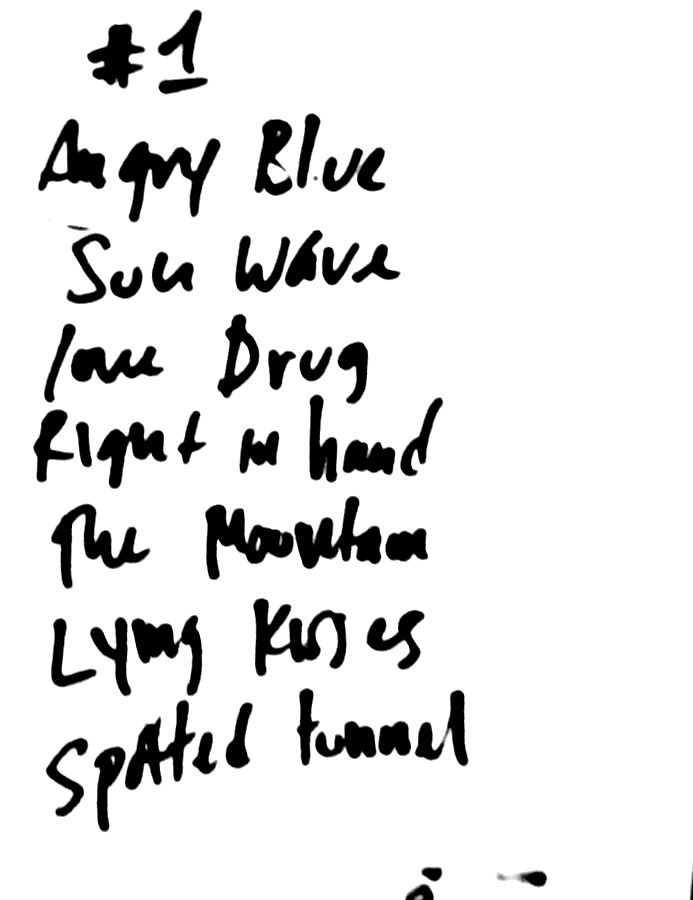 #1
Angry Blue
Sun Wave
love Drug
Right in hand
The Mountain
Lying Kisses
tunnel